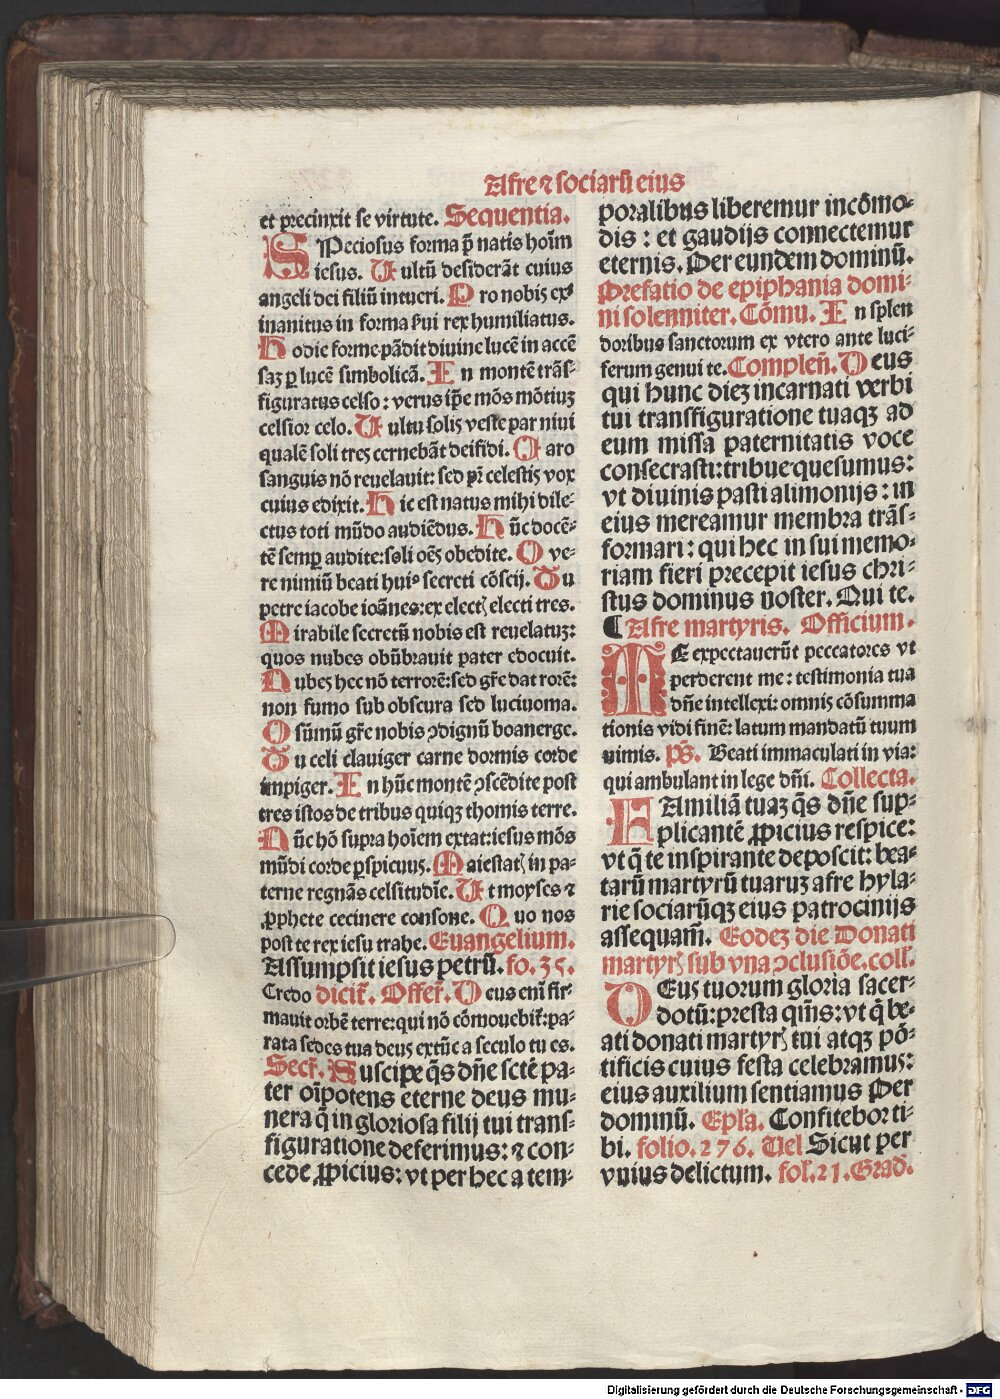 Afre ⁊ sociarū eius
et precinxit se virtute. Sequentia.
SPeciosus forma p̄ natis hoīm
iesus. Uultū desiderāt cuius
angeli dei filiū intueri. Pro nobis ex
inanitus in forma s̄ui rex humiliatus.
Hodie forme pādit diuine lucē in accē
saꝫ ꝑ lucē simbolicā. In montē trāſ-
figuratus celso : verus ip̄e mōs mōtiuꝫ
celsior celo. Uultu solis veste par niui
qualē soli tres cernebāt deifidi. Caro
sanguis nō reuelauit: sed pr̄ celestis vox
cuius edixit. Hic est natus mihi dile-
ctus toti mūdo audiēdus. Hūc docē-
tē semꝑ audite: soli oēs obedite. O ve-
re nimiū beati huiꝰ secreti cōscij. Tu
petre iacobe ioānes: ex elect electi tres.
Mirabile secretū nobis est reuelatuꝫ:
quos nubes obūbrauit pater edocuit.
Nubes hec nō terrorē: sed gr̄e dat rorē:
non fumo sub obscura sed luciuoma.
O sūmū gr̄e nobis ꝯdignū boanerge.
Tu celi clauiger carne dormis corde
impiger. In hūc montē ꝯscēdite post
tres istos de tribus quiqꝫ thomis terre.
Nūc hō supra hoīem extat: iesus mōs
mūdi corde ꝑspicuus. Maiestat in pa-
terne regnās celsitudīe. Ut moyses ⁊
ꝓphete cecinere consone. Quo nos
post te rex iesu trahe. Euangelium.
Assumpsit iesus petrū. fo. 35.
Credo dicit̄. Offer̄. Deus enī fir-
mauit orbē terre: qui nō cōmouebit̄: pa-
rata sedes tua deus extūc a seculo tu es.
Secr̄. Suscipe q̄s dn̄e sctē pa-
ter oīpotens eterne deus mu-
nera q̄ in gloriosa filij tui trans-
figuratione deferimus: ⁊ con-
cede ꝓpicius: vt per hec a tem-
poralibus liberemur incōmo-
dis : et gaudijs connectemur
eternis. Per eundem dominū.
Prefatio de epiphania domi-
ni solenniter. Cōmu. In splen
doribus sanctorum ex vtero ante luci-
ferum genui te. Compleñ. Deus
qui hunc diez incarnati verbi
tui transfiguratione tuaqꝫ ad
eum missa paternitatis voce
consecrasti: tribue quesumus:
vt diuinis pasti alimonijs : in
eius mereamur membra trāſ-
formari : qui hec in sui memo-
riam fieri precepit iesus chri-
stus dominus noster. Qui te.
Afre martyris. Officium.
ME expectauerūt peccatores vt
perderent me : testimonia tua
dn̄e intellexi: omnis cōsumma
tionis vidi finē: latum mandatū tuum
nimis. ps̄. Beati immaculati in via:
qui ambulant in lege dn̄i. Collecta.
FAmiliā tuaꝫ q̄s dn̄e sup-
plicantē ꝓpicius respice:
vt q̄ te inspirante deposcit: bea-
tarū martyrū tuaruꝫ afre hyla-
rie sociarūqꝫ eius patrocinijs
assequam̄. Eodeꝫ die Donati
martyr sub vna ꝯclusiōe. coll̄.
DEus tuorum gloria sacer-
dotū: presta qm̄s: vt q̄ be-
ati donati martyr tui atqꝫ pō-
tificis cuius festa celebramus:
eius auxilium sentiamus Per
dominū. Epl̄a. Confitebor ti-
bi. folio. 276. Uel Sicut per
vnius delictum. fol̄. 21. Grad̄.
Digitalisierung gefördert durch die Deutsche Forschungsgemeinschaft - DFG